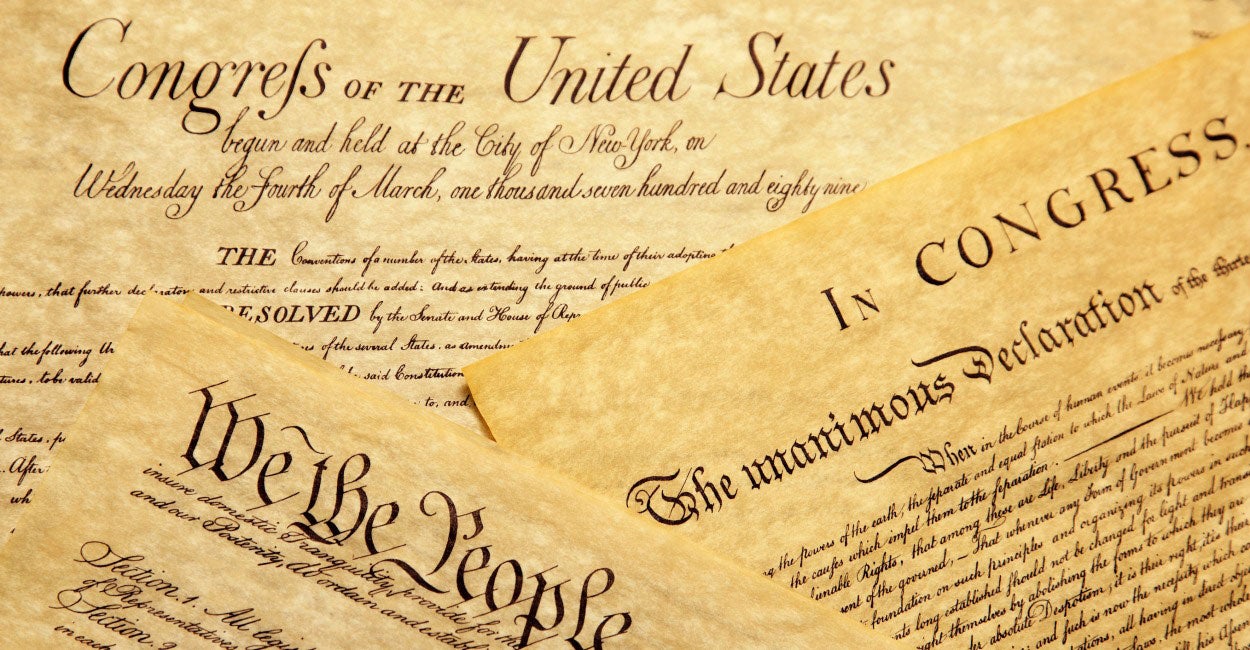 Congreſs OF THE United States
begun and held at the City of New-York, on
Wednesday the Fourth of March, one thousand seven hundred and eighty nine
THE Conventions of a number of the States, having at the time of their adopting
powers, that further declaratory and restrictive clauses should be added: And as extending the ground of public
RESOLVED by the Senate and House of Rep
that the following
of the several States, as amendm
tures, to be valid
said Constitution
to, and
States,
After
wh
We the People
insure domestic Tranquility, provide for the
and our Posterity, do ordain and establ
Section. 1. All legis
of Representatives
Section.
in each
IN CONGRESS,
The unanimous Declaration of the thirte
When in the Course of human events, it becomes necessary
the powers of the earth, the separate and equal station to which the Laws of Nature and
the causes which impel them to the separation. — We hold the
unable Rights, that among these are Life, Liberty and the pursuit of Happ
sent of the governed, — That whenever any Form of Government becomes
foundation on such principles and organizing its powers in such
nts long established should not be changed for light and trans
right themselves by abolishing the forms to which they are
er absolute Despotism, it is their right, it is their
and such is now the necessity which co
ations, all having in direct obje
Laws, the most whole
his Assent